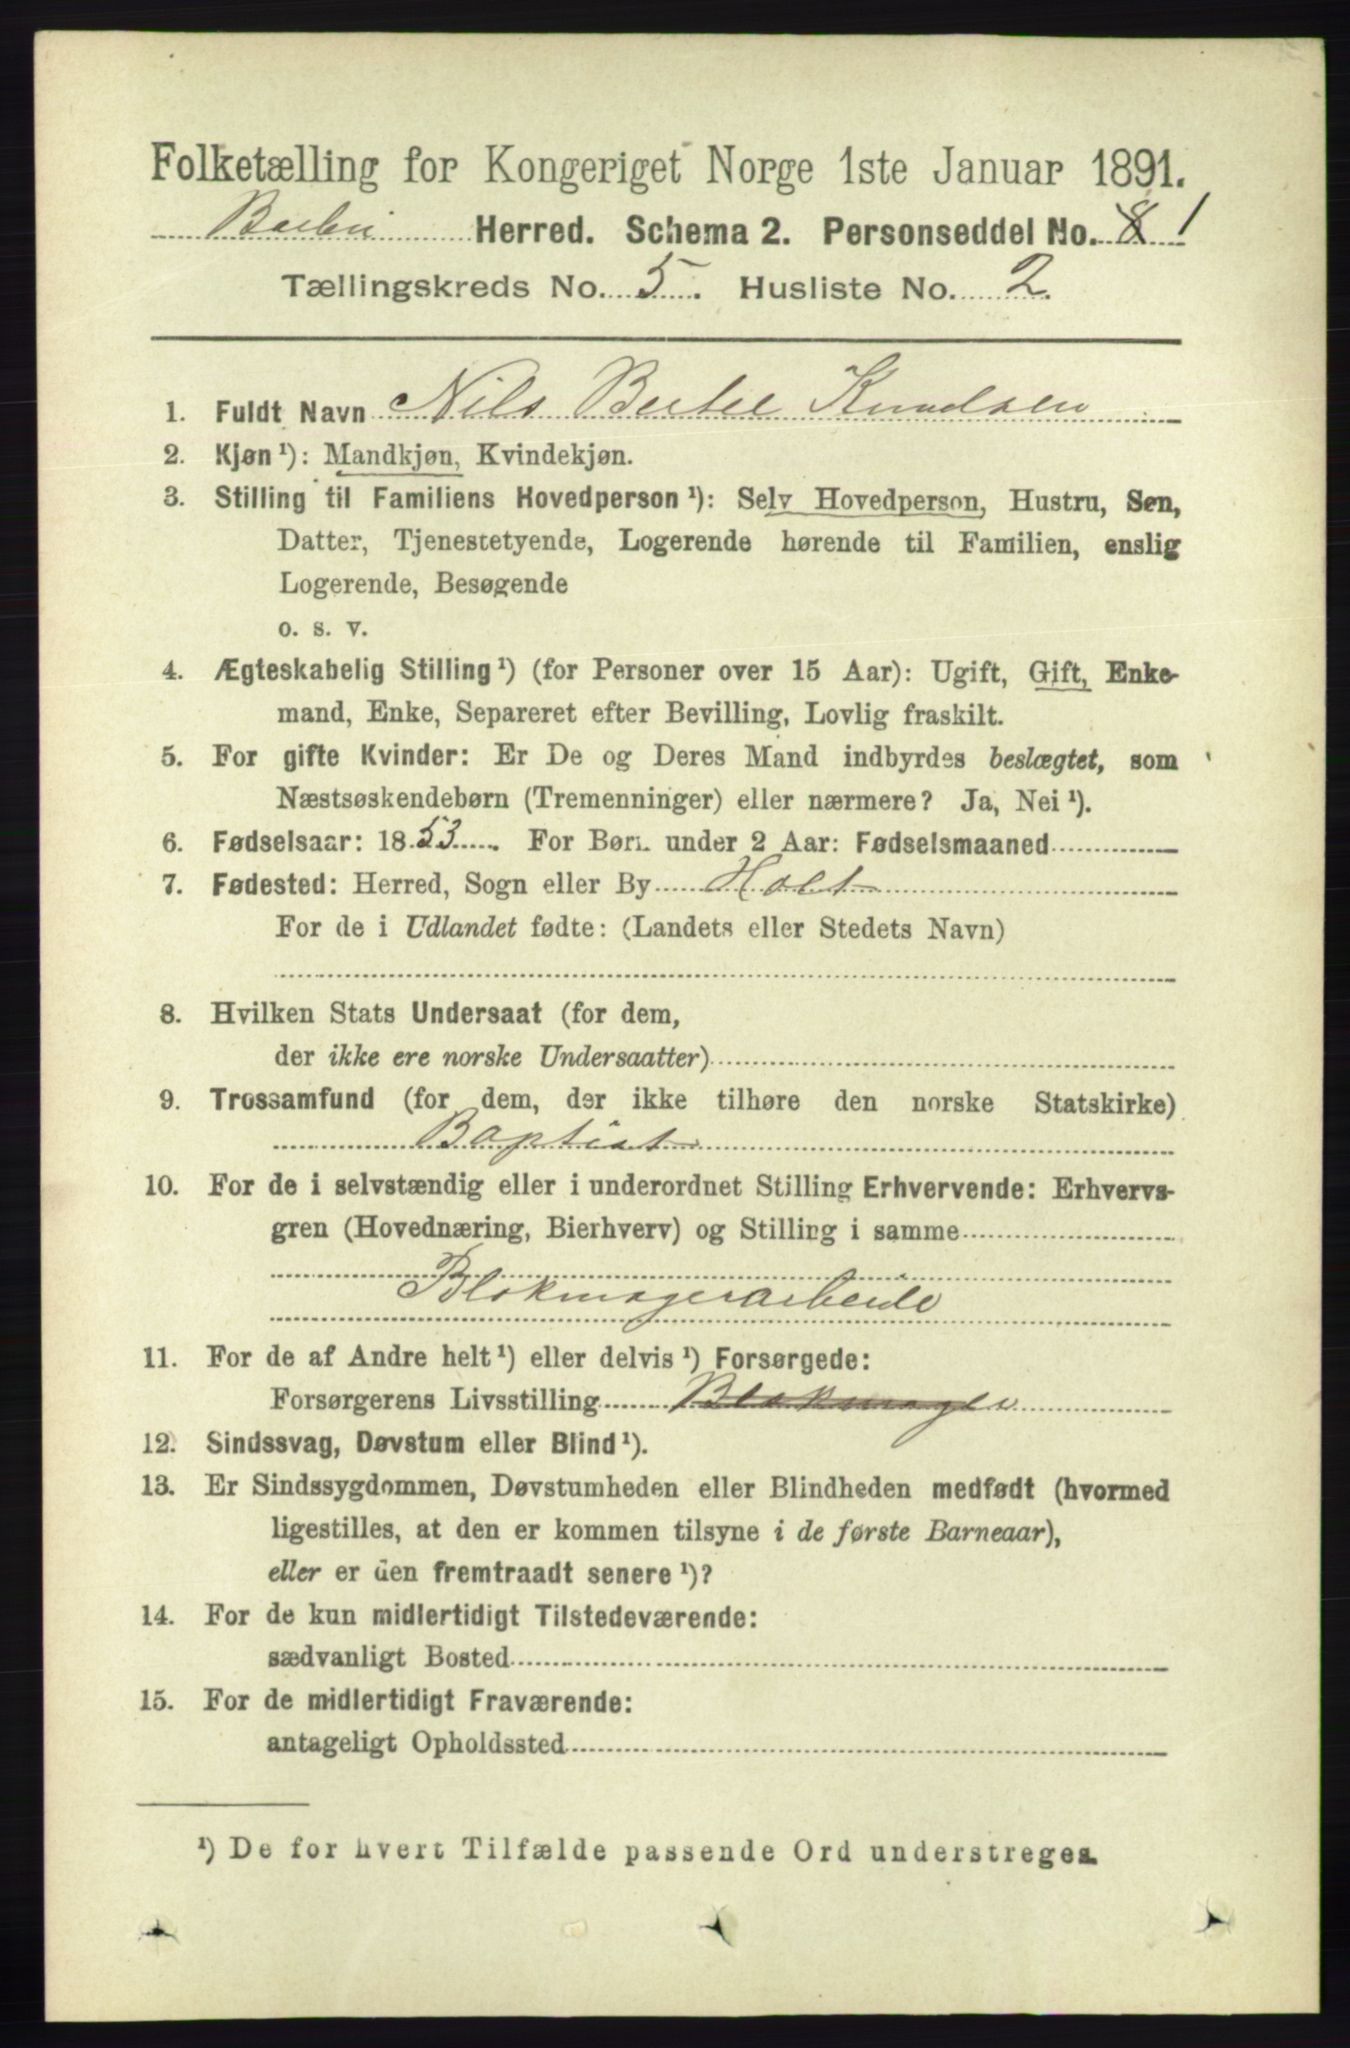 Folketælling for Kongeriget Norge 1ste Januar 1891.
Barbu Herred. Schema 2. Personseddel No. 8 1
Tællingskreds No. 5. Husliste No. 2.
1. Fuldt Navn Nils Bertel Knudsen
2. Kjøn¹): Mandkjøn, Kvindekjøn.
3. Stilling til Familiens Hovedperson¹): Selv Hovedperson, Hustru, Søn,
Datter, Tjenestetyende, Logerende hørende til Familien, enslig
Logerende, Besøgende
o. s. v.
4. Ægteskabelig Stilling¹) (for Personer over 15 Aar): Ugift, Gift, Enke-
mand, Enke, Separeret efter Bevilling, Lovlig fraskilt.
5. For gifte Kvinder: Er De og Deres Mand indbyrdes beslægtet, som
Næstsøskendebørn (Tremenninger) eller nærmere? Ja, Nei¹).
6. Fødselsaar: 1853. For Børn under 2 Aar: Fødselsmaaned
7. Fødested: Herred, Sogn eller By Holt
For de i Udlandet fødte: (Landets eller Stedets Navn)
8. Hvilken Stats Undersaat (for dem,
der ikke ere norske Undersaatter)
9. Trossamfund (for dem, der ikke tilhøre den norske Statskirke)
Baptist
10. For de i selvstændig eller i underordnet Stilling Erhvervende: Erhvervs-
gren (Hovednæring, Bierhverv) og Stilling i samme
Blokmagerarbeide
11. For de af Andre helt¹) eller delvis¹) Forsørgede:
Forsørgerens Livsstilling Blokmager
12. Sindssvag, Døvstum eller Blind¹).
13. Er Sindssygdommen, Døvstumheden eller Blindheden medfødt (hvormed
ligestilles, at den er kommen tilsyne i de første Barneaar),
eller er den fremtraadt senere¹)?
14. For de kun midlertidigt Tilstedeværende:
sædvanligt Bosted
15. For de midlertidigt Fraværende:
antageligt Opholdssted
¹) De for hvert Tilfælde passende Ord understreges.